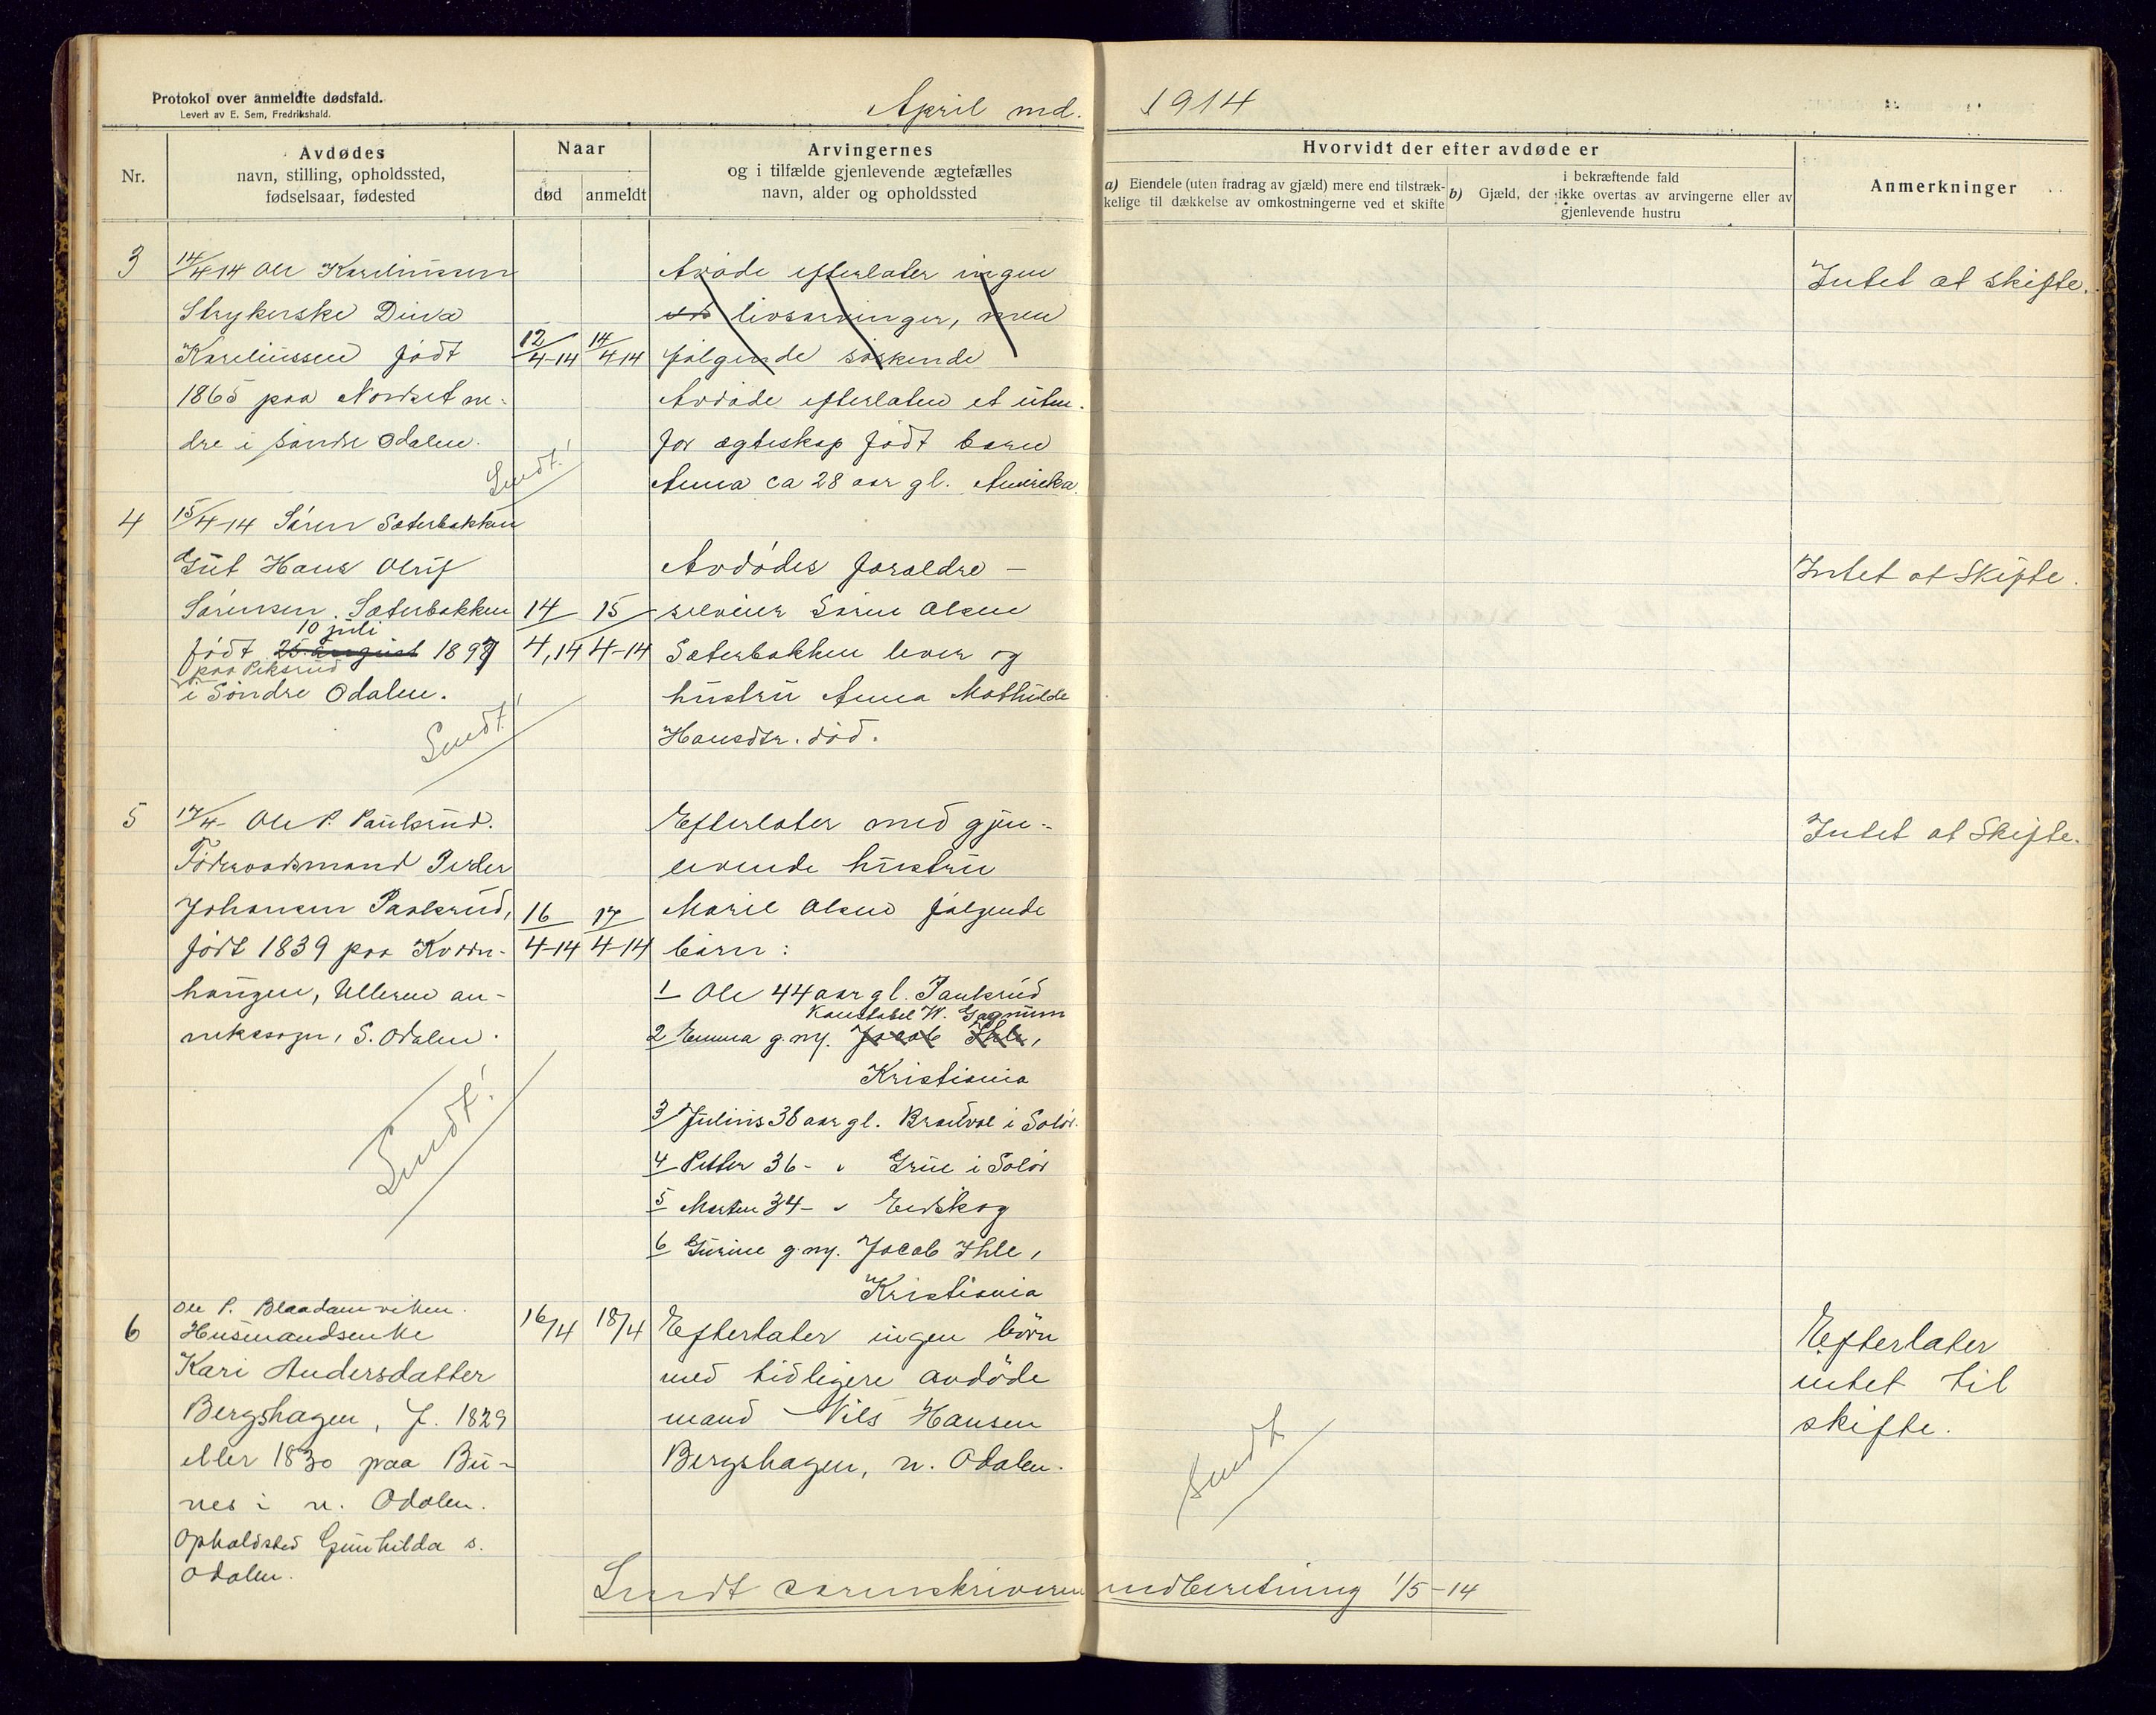 Protokol over anmeldte dødsfald.
Levert av E. Sem, Fredrikshald.
April md. 1914
Nr.
Avdødes
navn, stilling, opholdssted,
fødselsaar, fødested
Naar
død
anmeldt
Arvingernes
og i tilfælde gjenlevende ægtefælles
navn, alder og opholdssted
Hvorvidt der efter avdøde er
a) Eiendele (uten fradrag av gjæld) mere end tilstræk-
kelige til dækkelse av omkostningerne ved et skifte
i bekræftende fald
b) Gjæld, der ikke overtas av arvingerne eller av
gjenlevende hustru
Anmerkninger
3
14/4 14 Ole Kareliussen
Strykerske Dina
Kareliussen født
1865 paa Nordset ne-
dre i søndre Odalen.
Sendt!
12/4-14
14/4 14
Avøde efterlater ingen
livsarvinger, men
følgende søskende
Avdøde efterlaten et uten-
for ægteskap født barn
Anna ca 28 aar gl. Amerika.
Intet at skifte.
4
15/4-14 Søren Sæterbakken
Gut Hans Olrif
Sørensen Sæterbakken
10 juli
født 25 august 1897
paa Piksrud
i Søndre Odalen.
Sendt!
14/4,14
15/4-14
Avdødes forældre -
selveier Søren Olsen
Sæterbakken lever og
hustru Anna Mathilde
Hansdtr. død.
Intet at Skifte.
5
17/4- Ole P. Paulsrud.
Føderaadsmand Peder
Johansen Paulsrud,
født 1839 paa Kvern-
haugen, Ulleren an-
nekssogn, S. Odalen.
Sendt!
16/4-14
17/4-14
Efterlater med gjen-
levende hustru
Marie Olsen følgende
børn:
1 Ole 44 aar gl. Paulsrud
Konstabel W. Gagnum
2 Emma g.m. Jacob Ihle,
Kristiania
3 Julius 38 aar gl. Brandval i Solør.
4 Petter 36 - " Grue i Solør
5 Morten 34 - " Eidskog
6 Gurine g.m. Jacob Ihle,
Kristiania
Intet at Skifte.
6
Ole P. Blaadamviken.
Husmandsenke
Kari Andersdatter
Bergshagen, f. 1829
eller 1830 paa Bu-
nes i n. Odalen.
Opholdsted Gunhilda s.
Odalen.
16/4
18/4
Efterlater ingen børn
med tidligere avdøde
mand Nils Hansen
Bergshagen, n. Odalen.
Sendt
Efterlater
intet til
skifte.
Sendt sorenskriveren indberetning 1/5-14